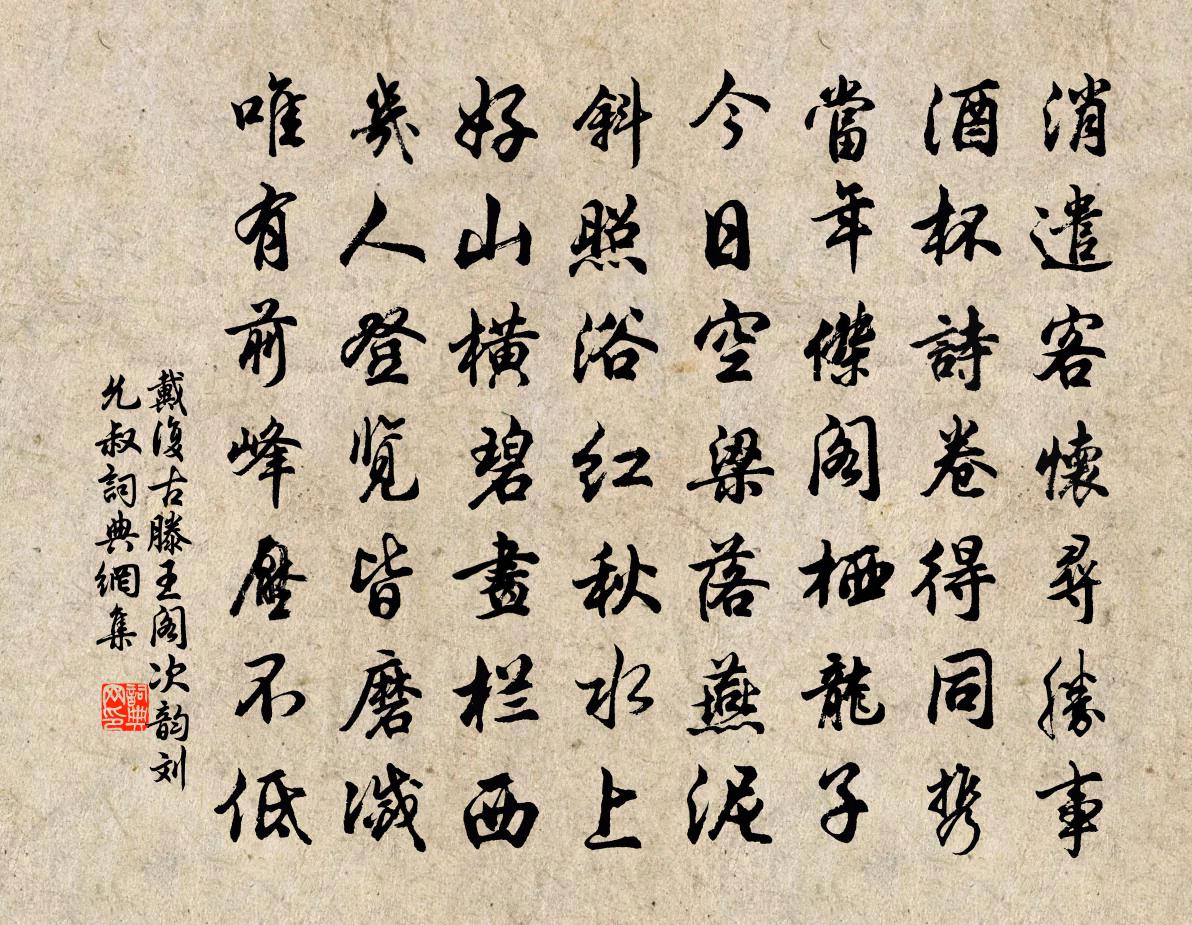 消遣客懷尋勝事
酒杯詩卷得同携
當年傑閣栖龍子
今日空梁落燕泥
斜照浴红秋水上
好山橫碧畫栏西
幾人登覽皆磨滅
唯有前峰壓不低
戴復古滕王阁次韵刘
允叔詞典網集
詞典
网印